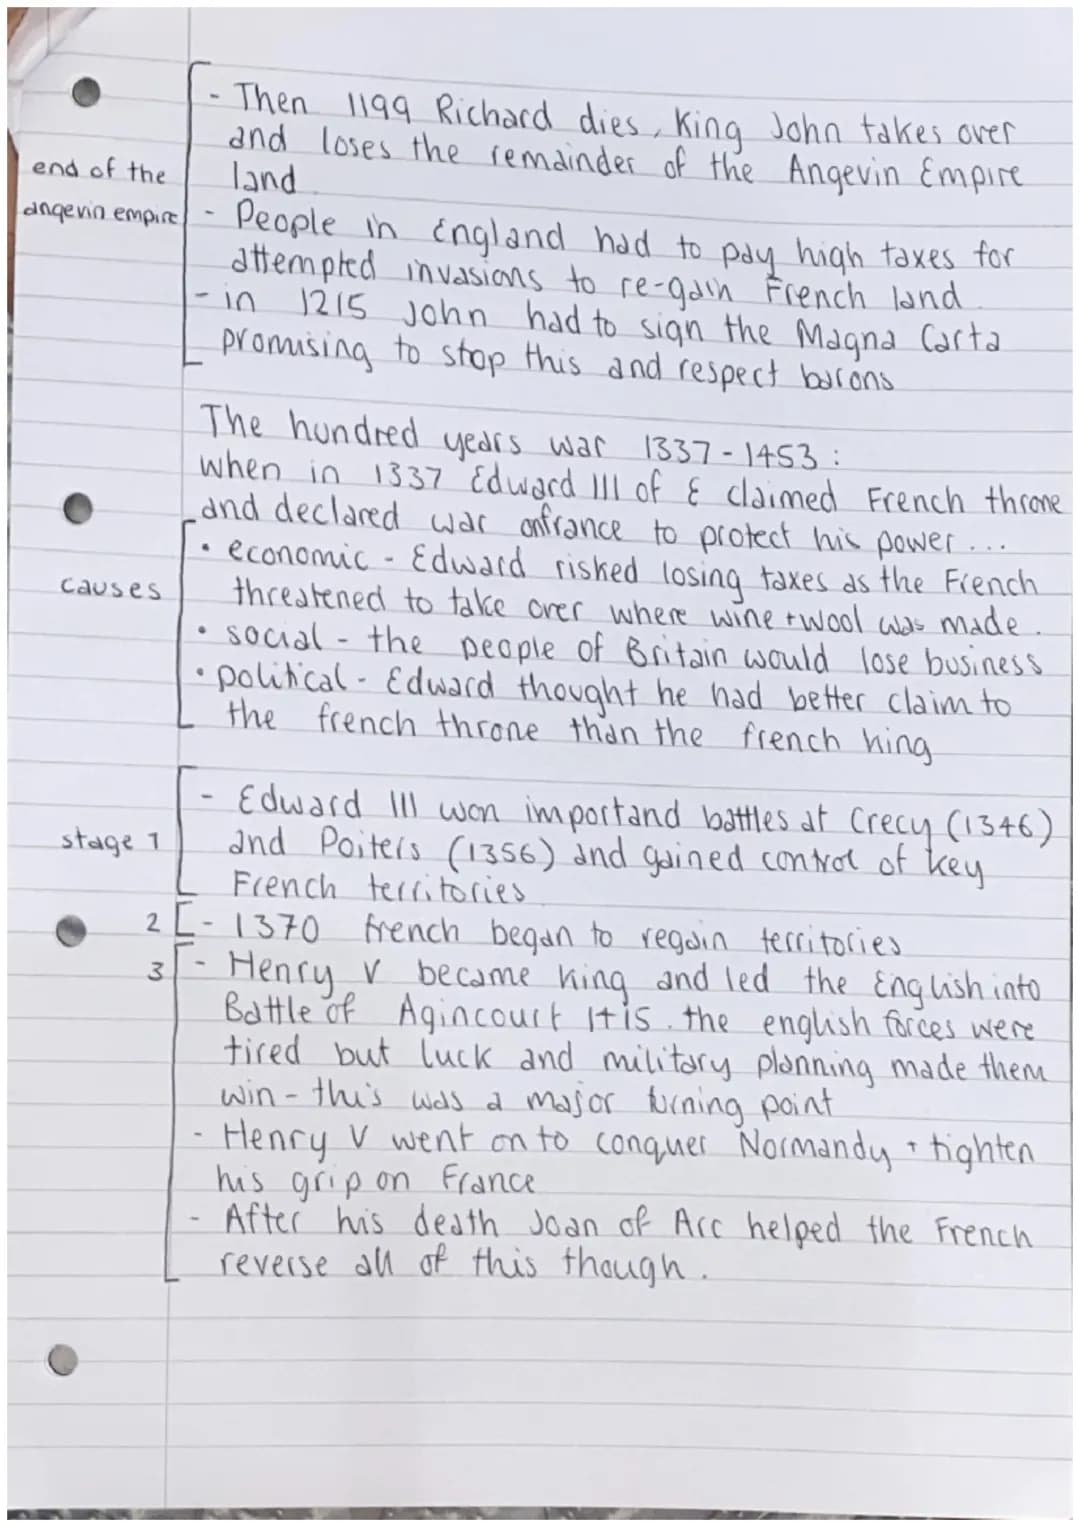 - Then 1199 Richard dies, King John takes over
and loses the remainder of the Angevin Empire
end of the
land
angevin empire
- People in England had to pay high taxes for
attempted invasions to re-gain French land
- in 1215 John had to sign the Magna Carta
promising to stop this and respect barons
The hundred years war 1337-1453:
when in 1337 Edward III of E claimed French throne
and declared war onfrance to protect his power...
• economic - Edward risked losing taxes as the French
causes
threatened to take over where wine + wool was made.
• social - the people of Britain would lose business
• political - Edward thought he had better claim to
the french throne than the french king
- Edward III won importand battles at Crecy (1346)
stage 1
and Poiters (1356) and gained control of key
French territories
2 - 1370 french began to regain territories
3 - Henry V became king and led the English into
Battle of Agincourt 1415. the english forces were
tired but luck and military planning made them
win - this was a major turning point
- Henry V went on to conquer Normandy + tighten
his grip on France
- After his death Joan of Arc helped the French
reverse all of this though.